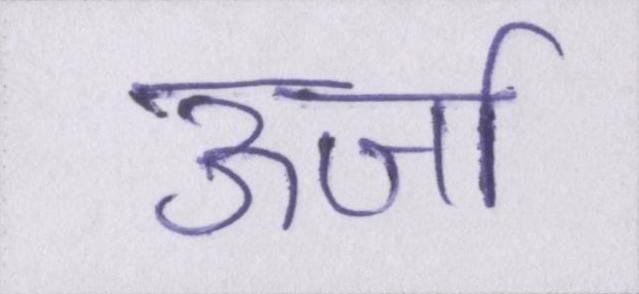 ऊर्जा